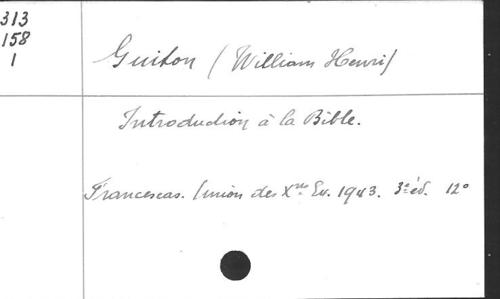 313
158
1
Guiton (William Henri)
Introduction à la Bible.
Francescas. Union des Xnes Ev. 1943. 3e éd. 12°